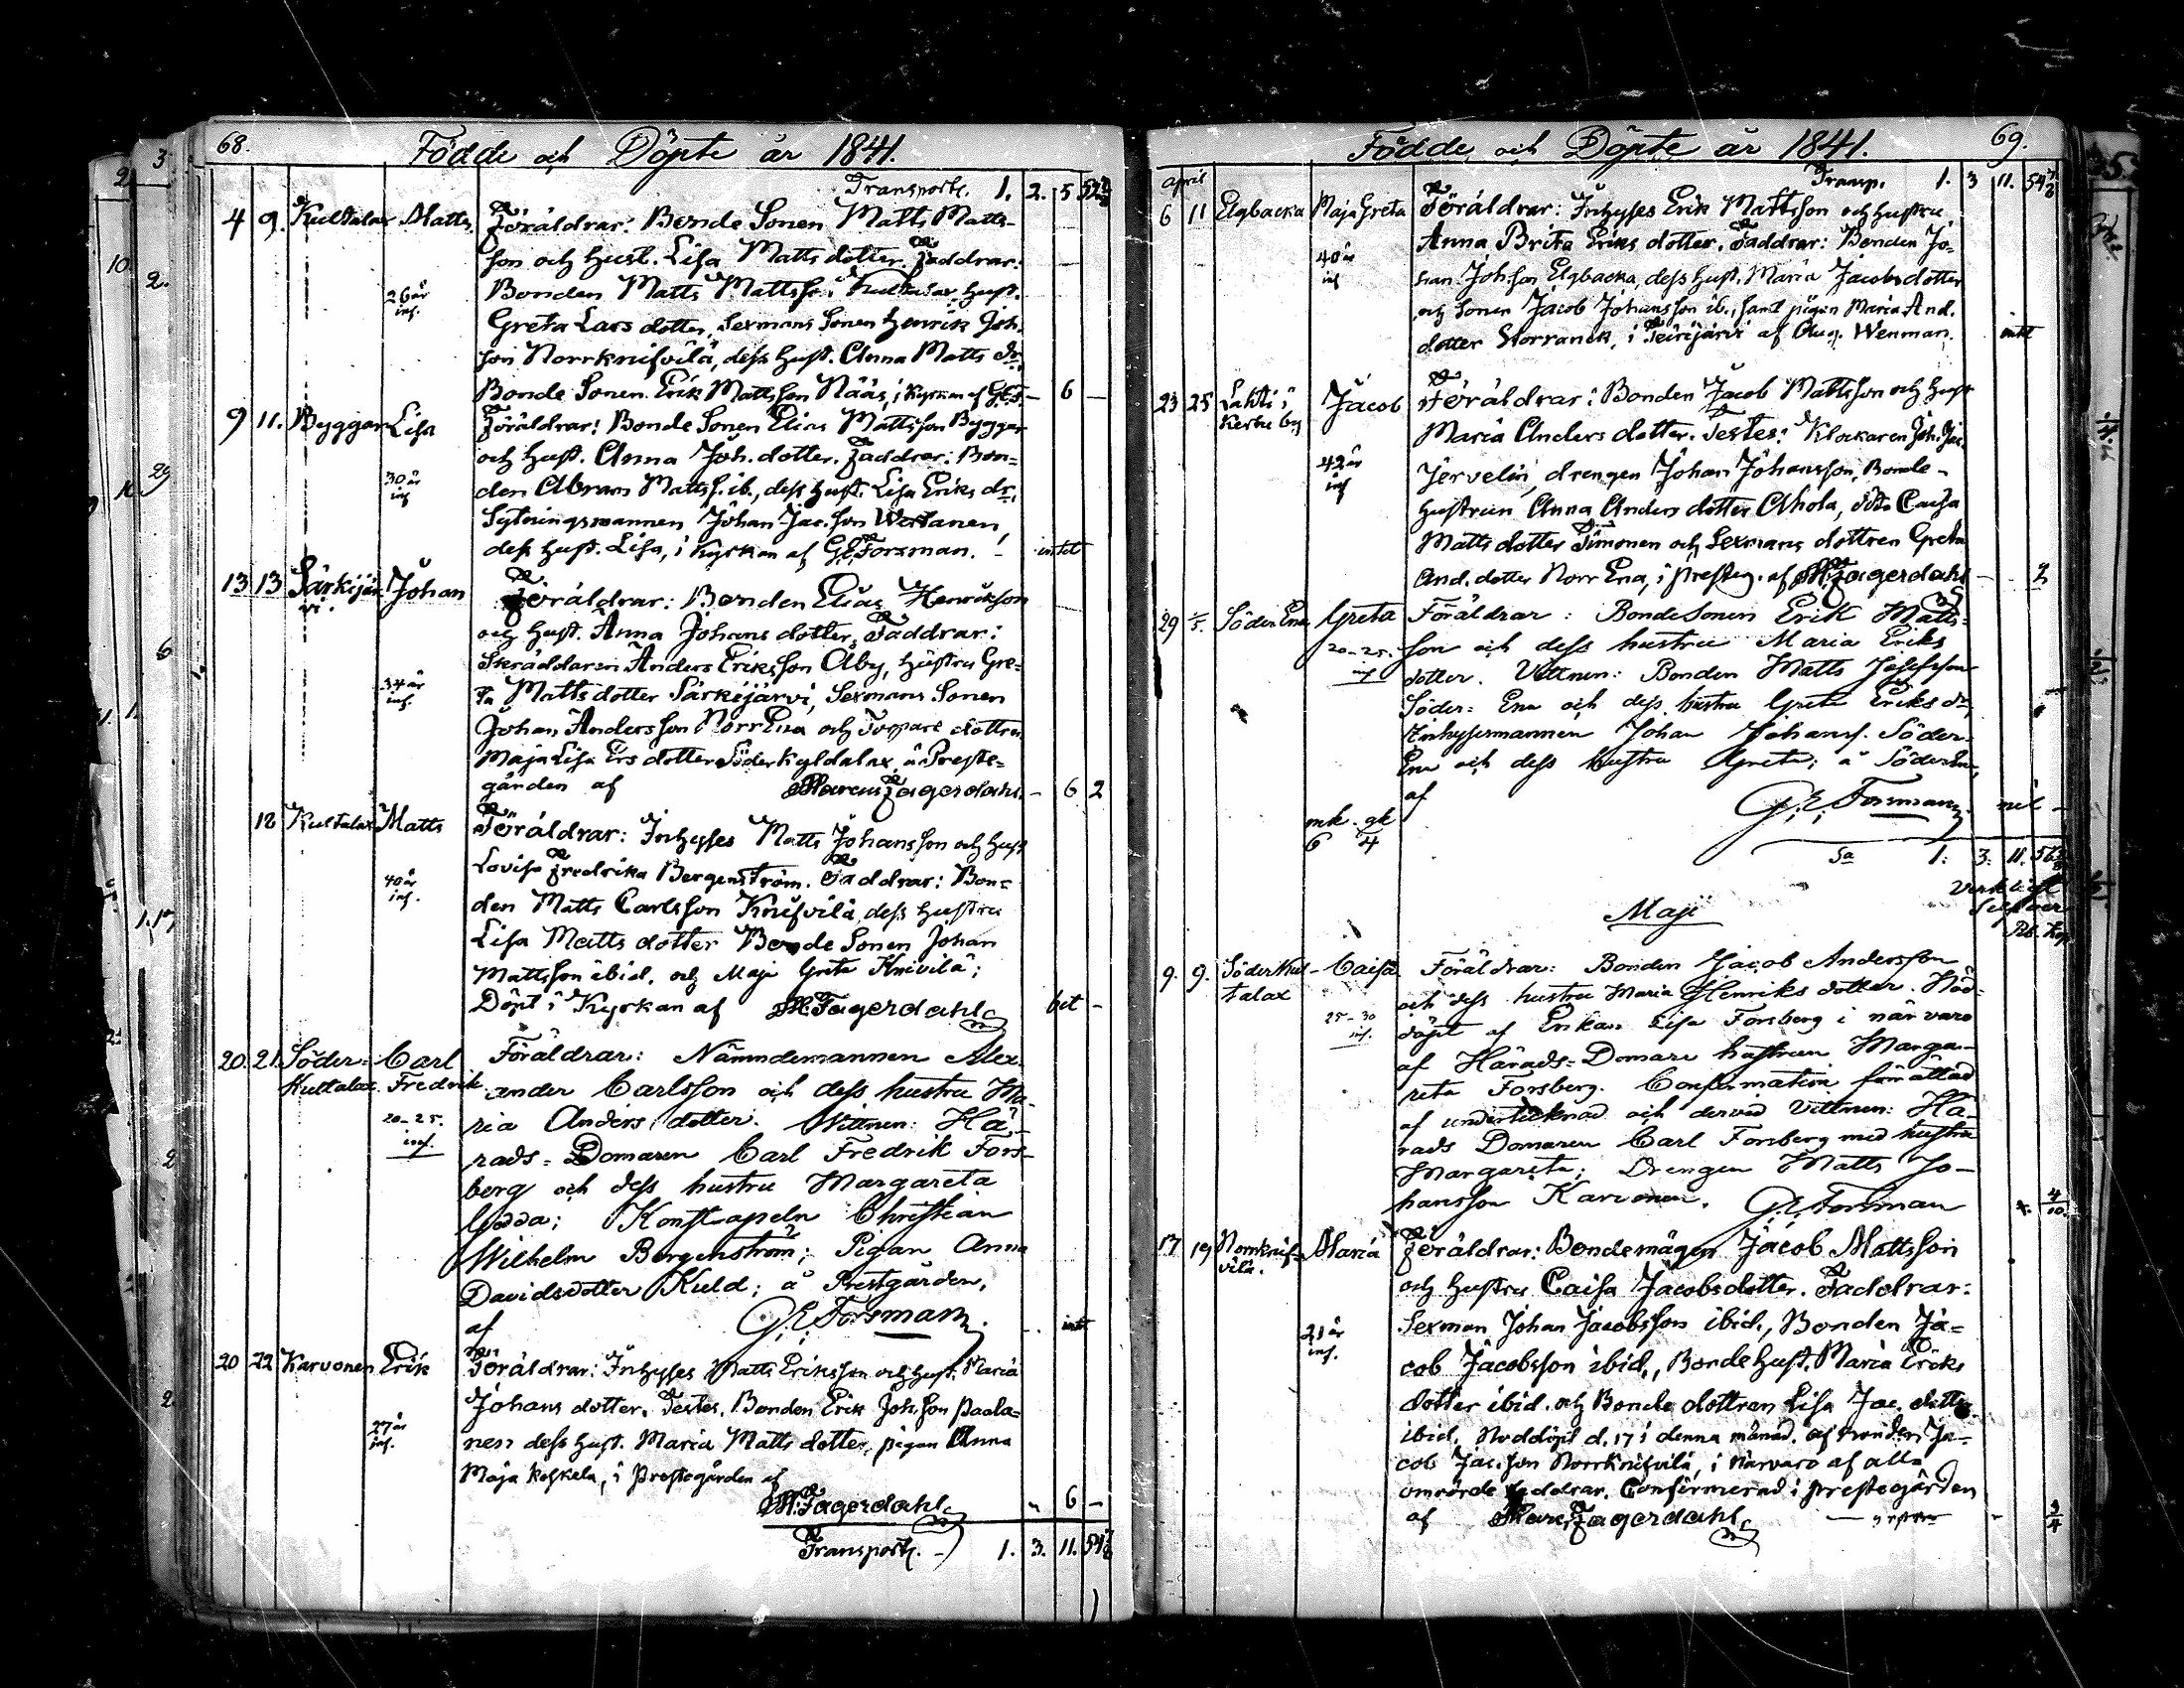 68.
Födde och Döpte år 1841.
Transport. 1. 2. 5
4 9. Kultalax Matts. Föräldrar: Bonde Sonen Matts Matts-
son och Hust. Lisa Matts dotter. Faddrar:
26 år Bonden Matts Mattss. i Kultalax, Hust.
inf.
Greta Lars dotter, Sexmans Sonen Henrik Joh.
son Norrknifvilä, dess Hust. Anna Matts dr.
Bonde Sonen Erik Mattsson Nääs, i Kyrkan af G.E.F. - 6 -
9 11. Byggar Lisa Föräldrar: Bonde Sonen Elias Mattsson Byggar
och Hust. Anna Joh. dotter. Faddrar: Bon=
30 år den Abram Matts S. ib., dess Hust. Lisa Eriks dr.
inf
Sytningsmannen Johan Jac.son Wertanen
dess Hust. Lisa, i Kyrkan af G.E. Forsman. intet
13 13 Särkijär Johan Föräldrar: Bonden Elias Henriksson
vi.
och Hust. Anna Johans dotter, Faddrar:
Skräddaren Anders Eriksson Åby, Hustru Gre=
34 år ta Mattsdotter Särkijärvi, Sexmans Sonen
inf.
Johan Andersson Norr Ena och Torpare dottren
Maja Lisa Ers dotter Söderkyldalax, å Preste=
gården af Marcus Fagerdahl. - 6 2
18 Kultalax Matts Föräldrar: Inhyses Matts Johansson och Hust
Lovisa Fredrika Bergenström. Faddrar: Bon=
40 år den Matts Carlsson Knifvilä, dess Hustru
inf.
Lisa Matts dotter Bonde Sonen Johan
Mattsson ibid. och Maja Greta Knivilä;
Döpt i Kyrkan af M. Fagerdahl -
20. 21. Söder= Carl Föräldrar: Nämndemannen Alex-
Kultalax. Fredrik ander Carlsson och dess hustru Ma-
20-25. ria Anders dotter. Wittnen: Hä-
inf. rads=Domaren Carl Fredrik Fors-
berg och dess hustru Margareta
Gadda; Konstapeln Christian
Wilhelm Bergenström; Pigan Anna
Davidsdotter Kuld; å Prestgården,
af G.E. Forsman. intet
20 22 Karvonen Erik Föräldrar: Inhyses Matts Eriksson och Hust. Maria
Johans dotter. Testes. Bonden Erik Joh.son Paala=
27 år nen dess Hust. Maria Matts dotter, pigan Anna
inf.
Maja Koskela, i Prestegården af
M. Fagerdahl - 6 -
Transport. - 1. 3. 11.
Födde och Döpte år 1841. 69.
April Transp. 1. 3 11.
6 11 Elgbacka Maja Greta Föräldrar: Inhyses Erik Mattsson och Hustru
Anna Brita Eriks dotter. Faddrar: Bonden Jo=
40 år han Joh.son Elgbacka, dess Hust. Maria Jacobs dotter
inf
och Sonen Jacob Johansson ib., samt pigan Maria And.
dotter Storranck, i Teirijärvi af Aug. Wenman. intet
23 25 Lahti i Jacob Föräldrar: Bonden Jacob Mattsson och Hust
Kerbu by
Maria Anders dotter. Testes: Klockaren Joh. Jac.
42 år Jervelin, drengen Johan Johansson, Bonde-
inf
Hustrun Anna Anders dotter Ahola, Caisa
Matts dotter Timonen och Sexmans dottren Greta
And. dotter Norr Ena, i Presteg. af M. Fagerdahl - - 2
29 Söder Ena Greta Föräldrar: Bondesonen Erik Matts-
20-25. son och dess hustru Maria Eriks
inf dotter. Vittnen: Bonden Matts Josefsson
Söder=Ena och dess hustru Greta Eriks dr,
Inhysesmannen Johan Johanss. Söder-
Ena och dess hustru Greta; å Söder Ena,
af G.E. Forsman nil -
mk. gk
6 4
Sa 1: 3: 11.
Maji
9. 9. Söderkul- Caisa Föräldrar: Bonden Jacob Andersson
talax och dess hustru Maria Henriks dotter. Nöd-
25-30 döpt af Enkan Lisa Forsberg i närvaro
inf.
af Härads=Domare hustrun Marga-
reta Forsberg. Confirmation förrättad
af undertecknad och dervid Vittnen: Hä-
rads Domaren Carl Forsberg med hustru
Margareta; Drengen Matts Jo-
hansson Karvonen. G.E. Forsman
17 19 Norrknif= Maria Föräldrar: Bondemågen Jacob Mattsson
vilä.
och Hustru Caisa Jacobsdotter. Faddrar:
21 år Sexman Johan Jacobsson ibid., Bonden Ja=
inf.
cob Jacobsson ibid., Bonde Hust. Maria Eriks
dotter ibid. och Bonde dottren Lisa Jac. dotter
ibid. Nöddöpt d. 17 i denna månad. af Bonden Ja=
cob Jac.son Norrknifvilä, i närvaro af alla
omrörde faddrar. Confirmerad i prestegården
af Marc. Fagerdahl 3/4